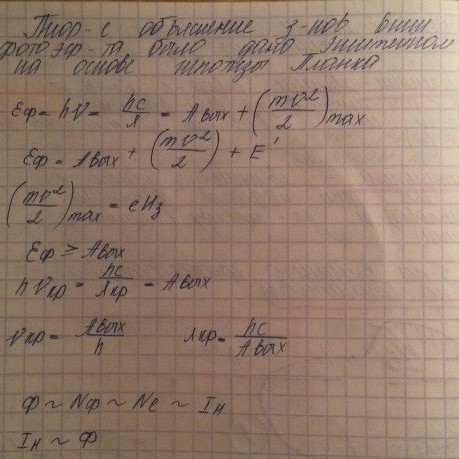 Теор-е объяснение з-нов внеш
фотоэф-та было дано Эйнштейном
на основе гипотезы Планка
Eф = hν = hc/λ = Aвых + (mv²/2)max
Eф = Aвых + (mv²/2) + E'
(mv²/2)max = eUз
Eф ≥ Aвых
hνкр = hc/λкр = Aвых
νкр = Aвых/h λкр = hc/Aвых
Ф ~ Nф ~ Ne ~ Iн
Iн ~ Ф